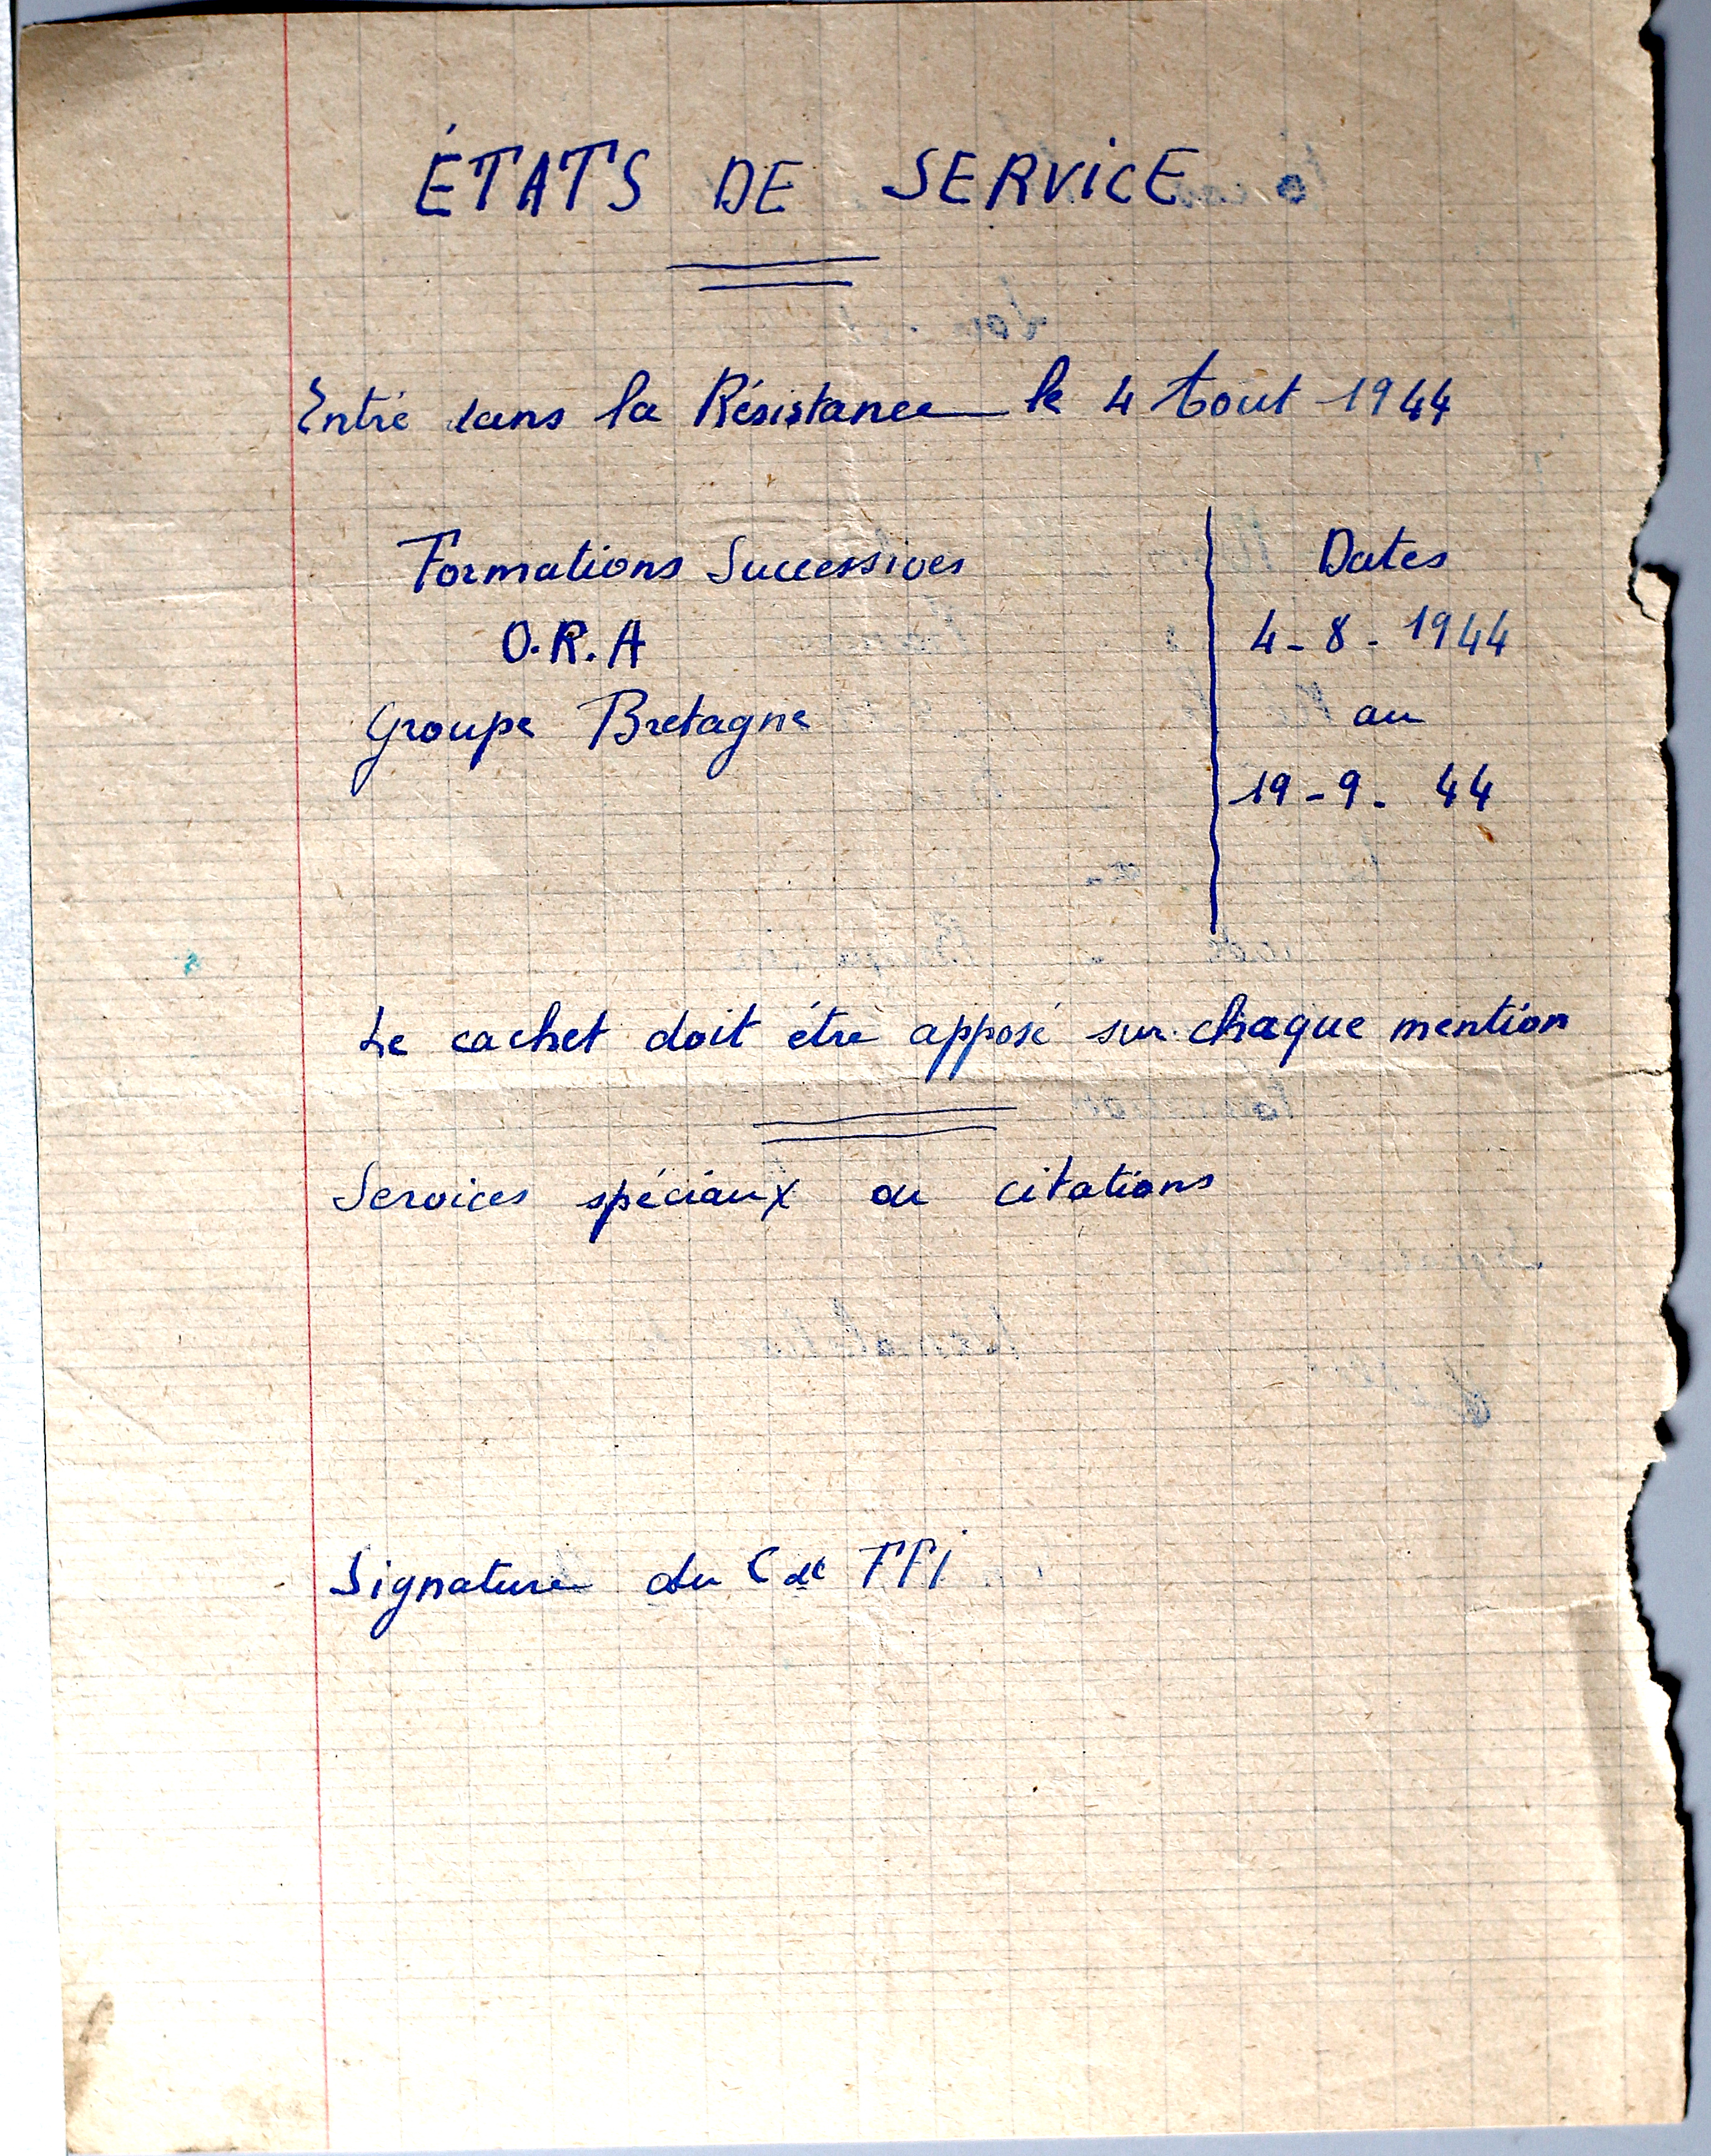 ÉTATS DE SERVICE
Entré dans la Résistance le 4 Aout 1944
Formations Successives Dates
O.R.A 4-8-1944
Groupe Bretagne au
19-9-44
Le cachet doit être apposé sur chaque mention
Services spéciaux ou citations
Signature du Cdt FFI